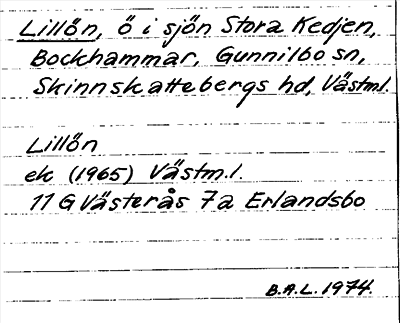 Lillön, ö i sjön Stora Kedjen,
Bockhammar, Gunnilbo sn,
Skinnskattebergs hd, Västml.
Lillön
ek (1965) Västm.l.
11 G Västerås 7a Erlandsbo
B.A.L. 1974.